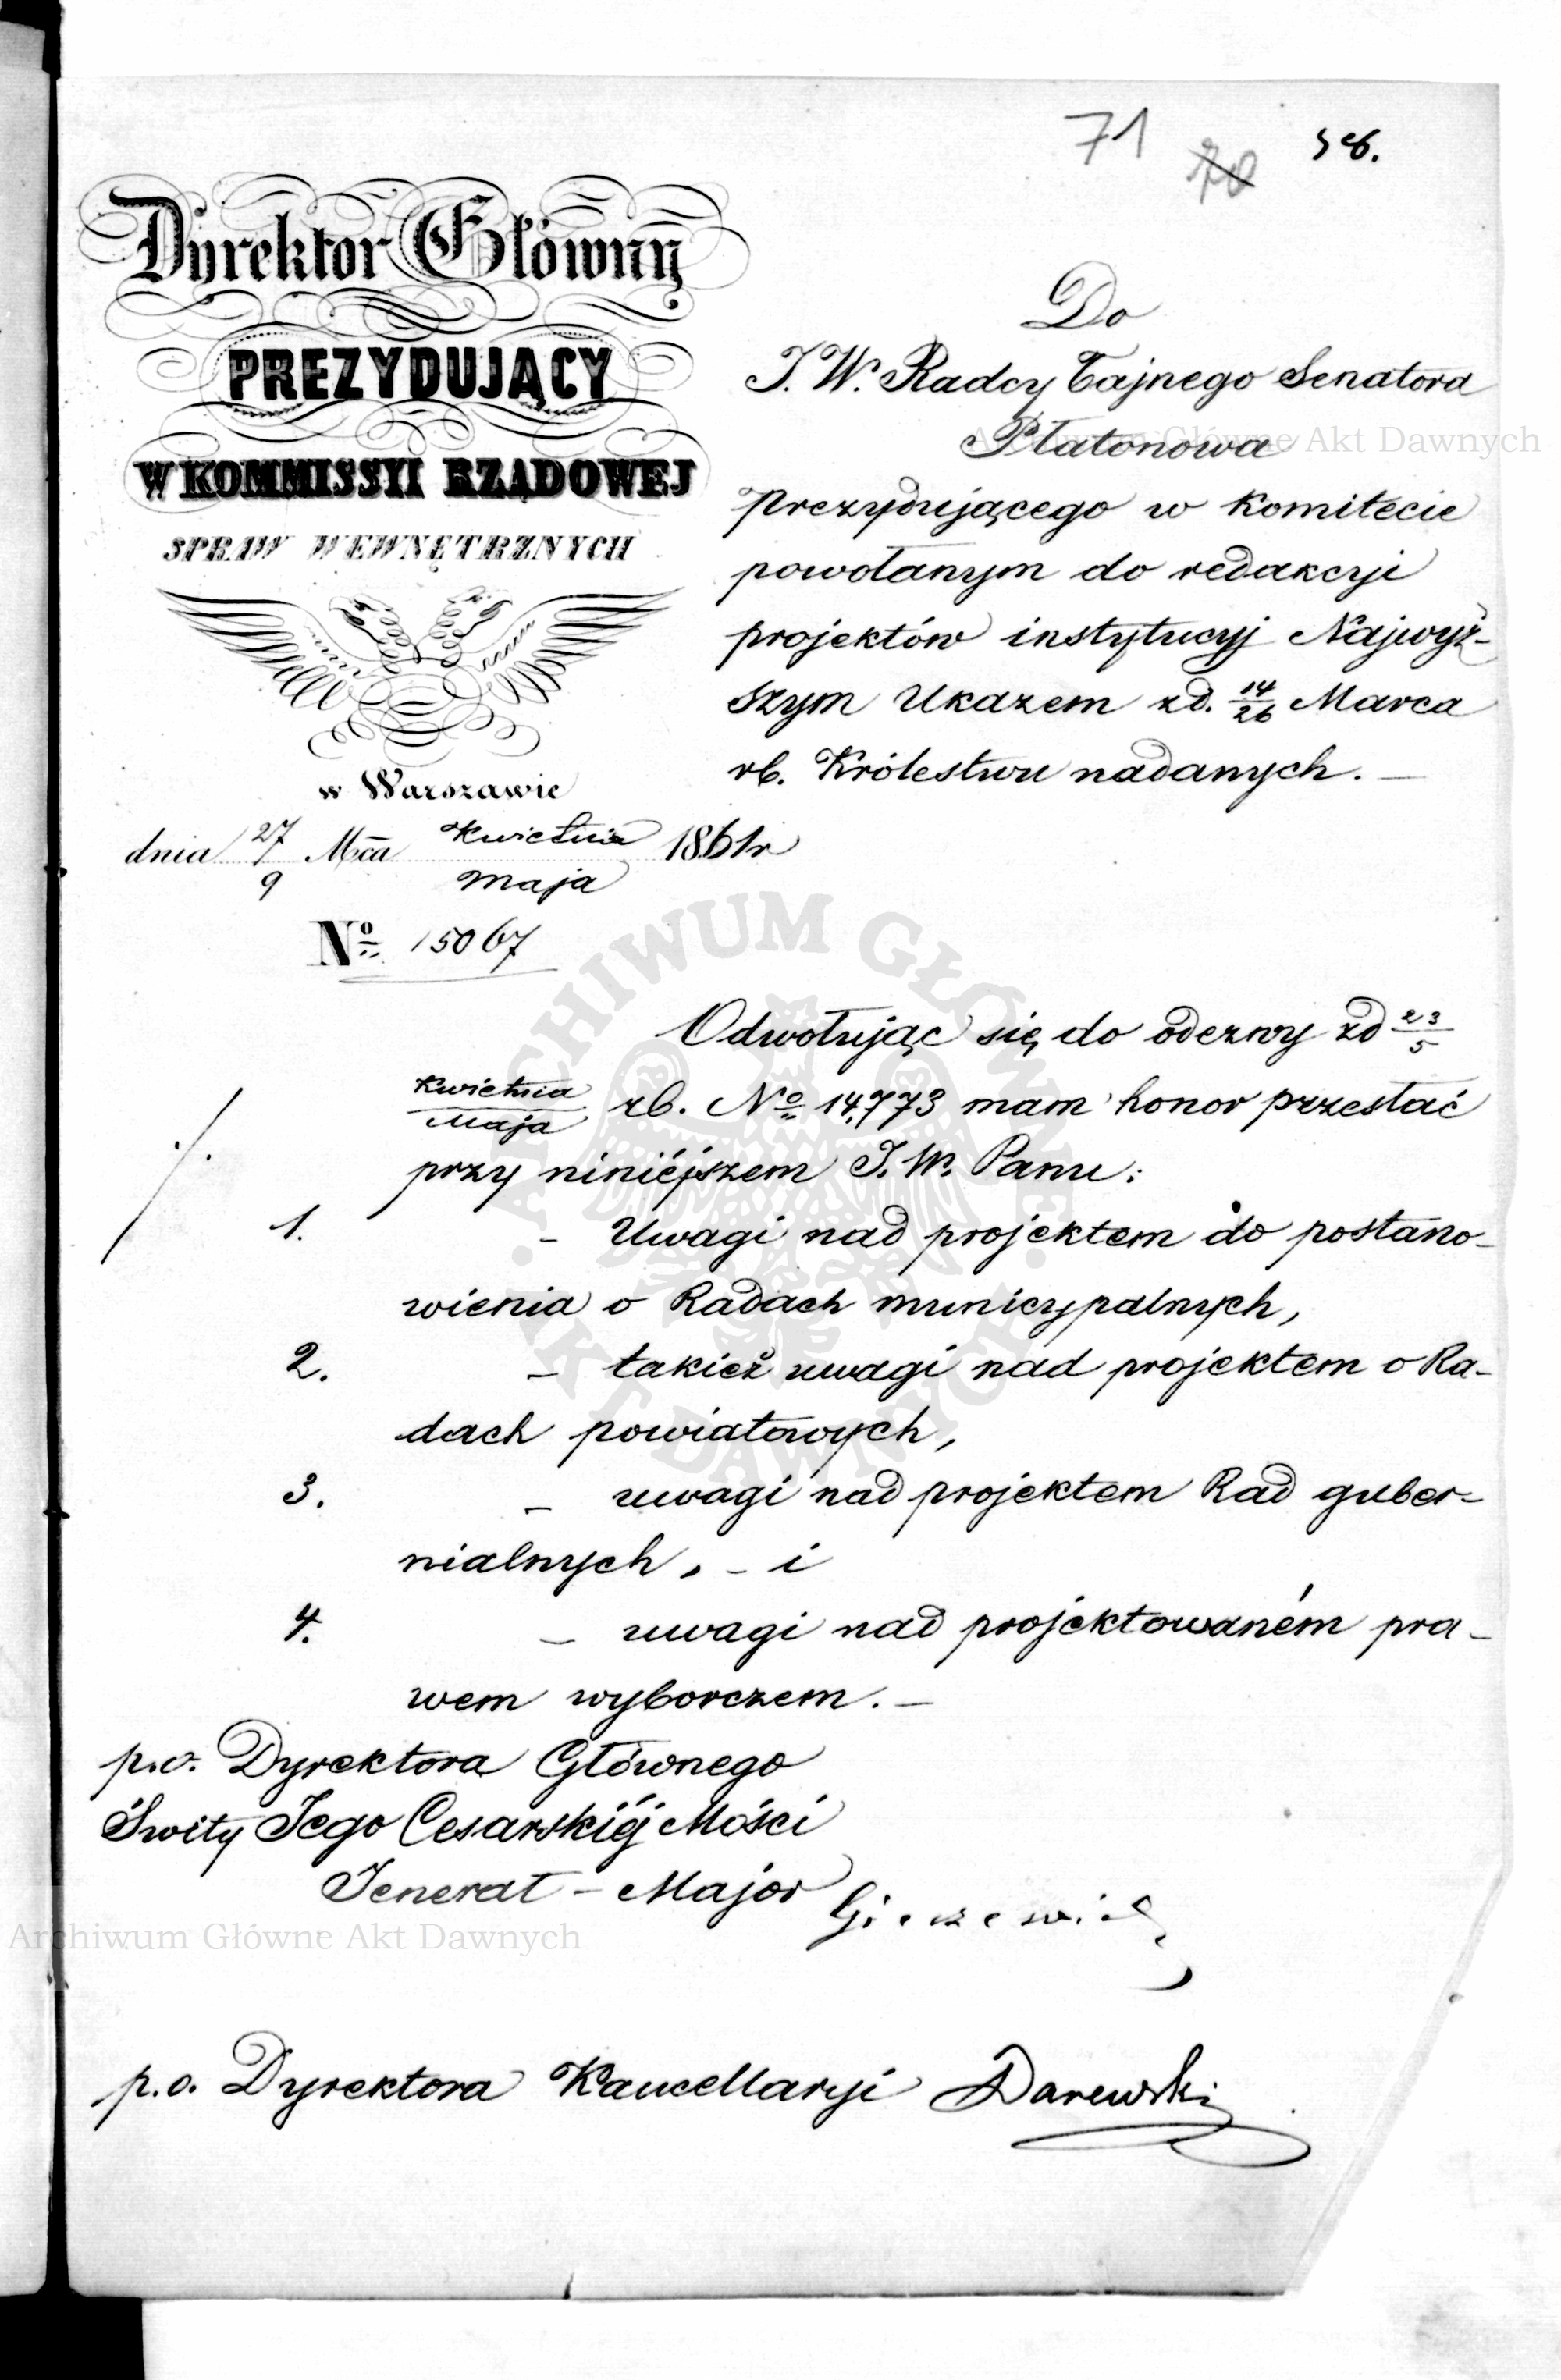 71 70 58.
Dyrektor Główny
PREZYDUJĄCY
W KOMMISSYI RZĄDOWEJ
SPRAW WEWNĘTRZNYCH
w Warszawie
dnia 27/9 Mca Kwietnia/Maja 1861r
No 15067
Do
J. W. Radcy Tajnego Senatora
Płatonowa
prezydującego w Komitecie
powołanym do redakcyi
projektów instytucyj Najwyż-
szym Ukazem zd. 14/26 Marca
rb. Królestwu nadanych. —
Odwołując się do odezwy zd 23/5
Kwietnia/Maja rb. No 14,773 mam honor przesłać
przy niniéjszem J. W. Panu:
1. – Uwagi nad projektem do postano-
wienia o Radach municypalnych,
2. – takież uwagi nad projektem o Ra-
dach powiatowych,
3. – uwagi nad projektem Rad guber-
nialnych, – i
4. – uwagi nad projektowaném pra-
wem wyborczem. —
p.o. Dyrektora Głównego
Świty Jego Cesarskiéj Mości
Jenerał – Major Gieczewicz
p.o. Dyrektora Kancellaryi Darewski
Archiwum Główne Akt Dawnych
ARCHIWUM GŁÓWNE AKT DAWNYCH
Archiwum Główne Akt Dawnych